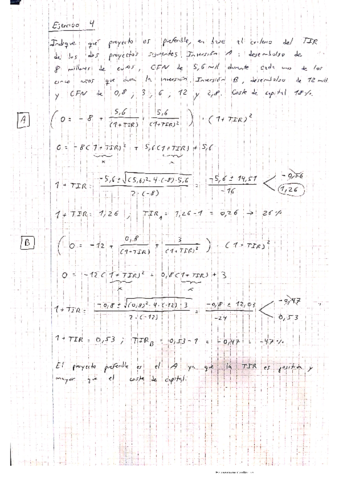 Ejercicio 4
Indique qué proyecto es preferible, en base al criterio del TIR
de los dos proyectos siguientes. Inversión A: desembolso de
8 millones de euros, CFN de 5,6 mill durante cada uno de los
cinco años que dura la inversión. Inversión B, desembolso de 12 mill
y CFN de 0,8, 3, 6, 12 y 2,8. Coste de capital 18%.
A
(0 = -8 + 5,6/(1+TIR) + 5,6/(1+TIR)²) · (1+TIR)²
0 = -8(1+TIR)² + 5,6(1+TIR) + 5,6
x x
1+TIR: -5,6 ± √((5,6)²-4·(-8)·5,6) / 2·(-8) = -5,6 ± 14,51 / -16 < -0,56
1,26
1+TIR: 1,26, TIR_A = 1,26-1 = 0,26 → 26%
B
(0 = -12 + 0,8/(1+TIR) + 3/(1+TIR)²) · (1+TIR)²
0 = -12(1+TIR)² + 0,8(1+TIR) + 3
x x
1+TIR: -0,8 ± √((0,8)²-4·(-12)·3) / 2·(-12) = -0,8 ± 12,03 / -24 < -0,47
0,53
1+TIR = 0,53; TIR_B = 0,53-1 = -0,47 → -47%
El proyecto preferible es el A ya que la TIR es positiva y
mayor que el coste de capital.